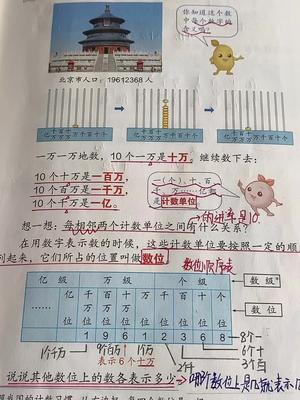 你知道这个数
中每个数字的
含义吗？
北京市人口：19612368人
亿 千百十万千百十个
亿 千百十万千百十个
亿 千百十万千百十个
一万一万地数，10个一万是十万。继续数下去：
10个十万是一百万，
10个一百万是一千万，
10个一千万是一亿。
一（个）、十、百
千、万……亿都
是计数单位
的进率是10
想一想：每相邻两个计数单位之间有什么关系？
在用数字表示数的时候，这些计数单位要按照一定的顺
列起来，它们所占的位置叫做数位
数位顺序表
亿级 万级 个级 数级
…… 亿位 千万位 百万位 十万位 万位 千位 百位 十位 个位 数位
1 9 6 1 2 3 6 8
8个一
6个十
3个百
2个千
1个万
表示6个十万
9个百万
1个千万
说说其他数位上的数各表示多少
哪个数位上是几就表示几